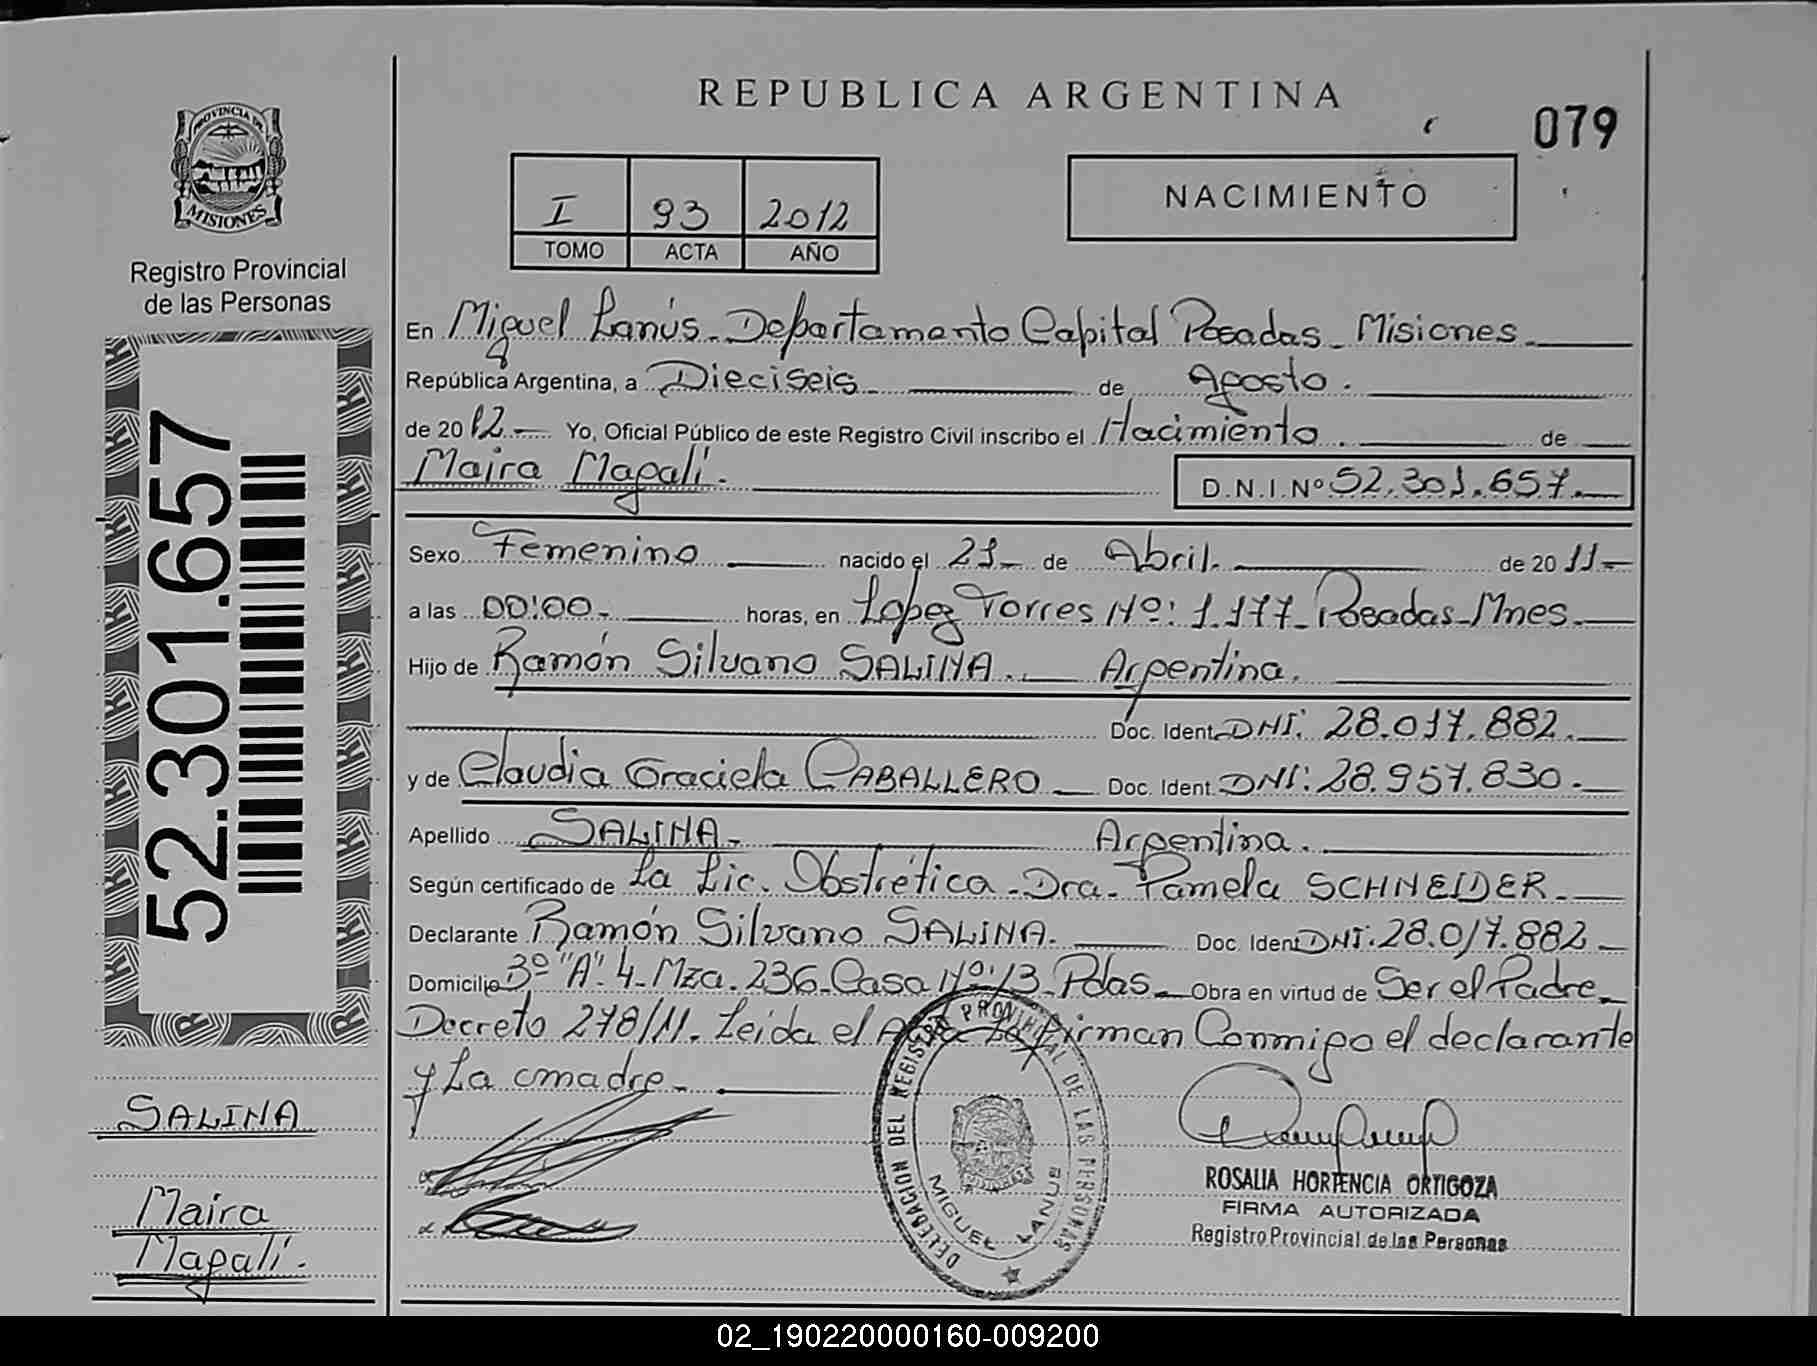 REPUBLICA ARGENTINA
079
PROVINCIA DE
MISIONES
Registro Provincial
de las Personas
I 93 2012
TOMO ACTA AÑO
NACIMIENTO
En Miguel Lanús. Departamento Capital Posadas - Misiones.
República Argentina, a Dieciseis de Agosto.
de 2012.- Yo, Oficial Público de este Registro Civil inscribo el Nacimiento de
Maira Magalí. D.N.I.Nº 52.301.657.
Sexo Femenino nacido el 21 de Abril. de 2011-
a las 00:00.- horas, en Lopez Torres Nº: 1.177- Posadas-Mnes.
Hijo de Ramón Silvano SALINA. Argentina.
Doc. Ident. DNI: 28.017.882.
y de Claudia Graciela CABALLERO Doc. Ident. DNI: 28.957.830.
Apellido SALINA- Argentina.
Según certificado de La Lic. Obstrética - Dra. Pamela SCHNEIDER.
Declarante Ramón Silvano SALINA. Doc. Ident DNI. 28.017.882
Domicilio 3º "A" 4. Mza. 236. Casa Nº: 13. Pdas. Obra en virtud de Ser el Padre
Decreto 278/11. Leida el firman Conmigo el declarante
y La madre.
52.301.657
SALINA
Maira
Magalí.
DELEGACION DEL REGISTRO PROVINCIAL DE LAS PERSONAS
MIGUEL LANUS
ROSALIA HORTENCIA ORTIGOZA
FIRMA AUTORIZADA
Registro Provincial de las Personas
02_190220000160-009200